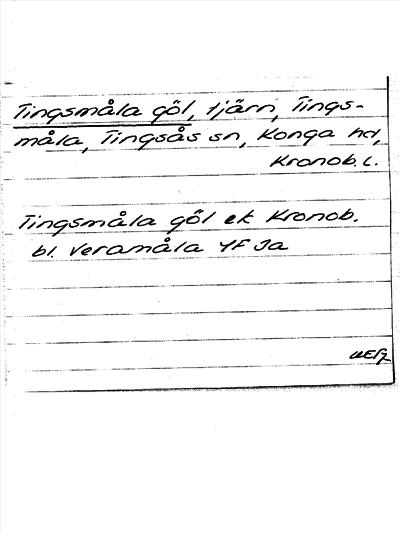 Tingsmåla göl, tjärn, Tings-
måla, Tingsås sn, Konga hd,
Kronob. l.
Tingsmåla göl ek Kronob.
bl. Veramåla 4F Ja